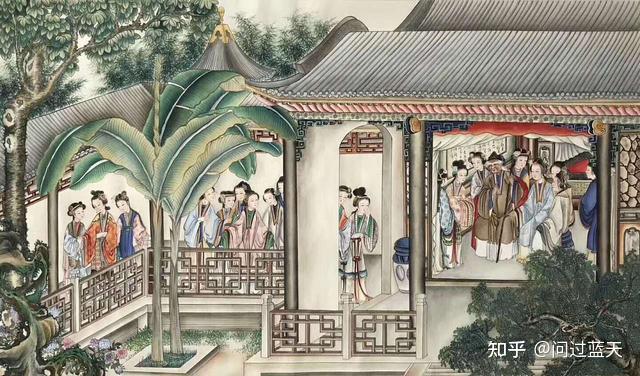 知乎 @问过蓝天